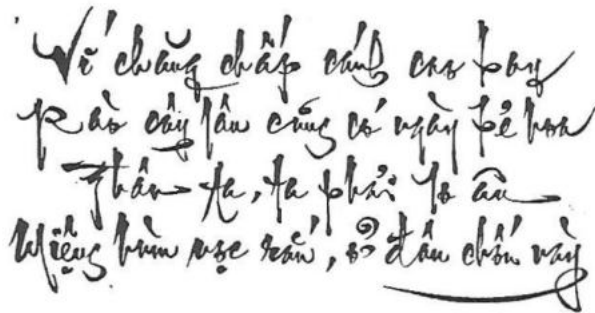 Ví chăng chắp cánh cao bay
Rào cây lâu cũng có ngày bẻ hoa
Thân ta, ta phải lo âu
Miệng hùm nọc rắn, ở đâu chốn này